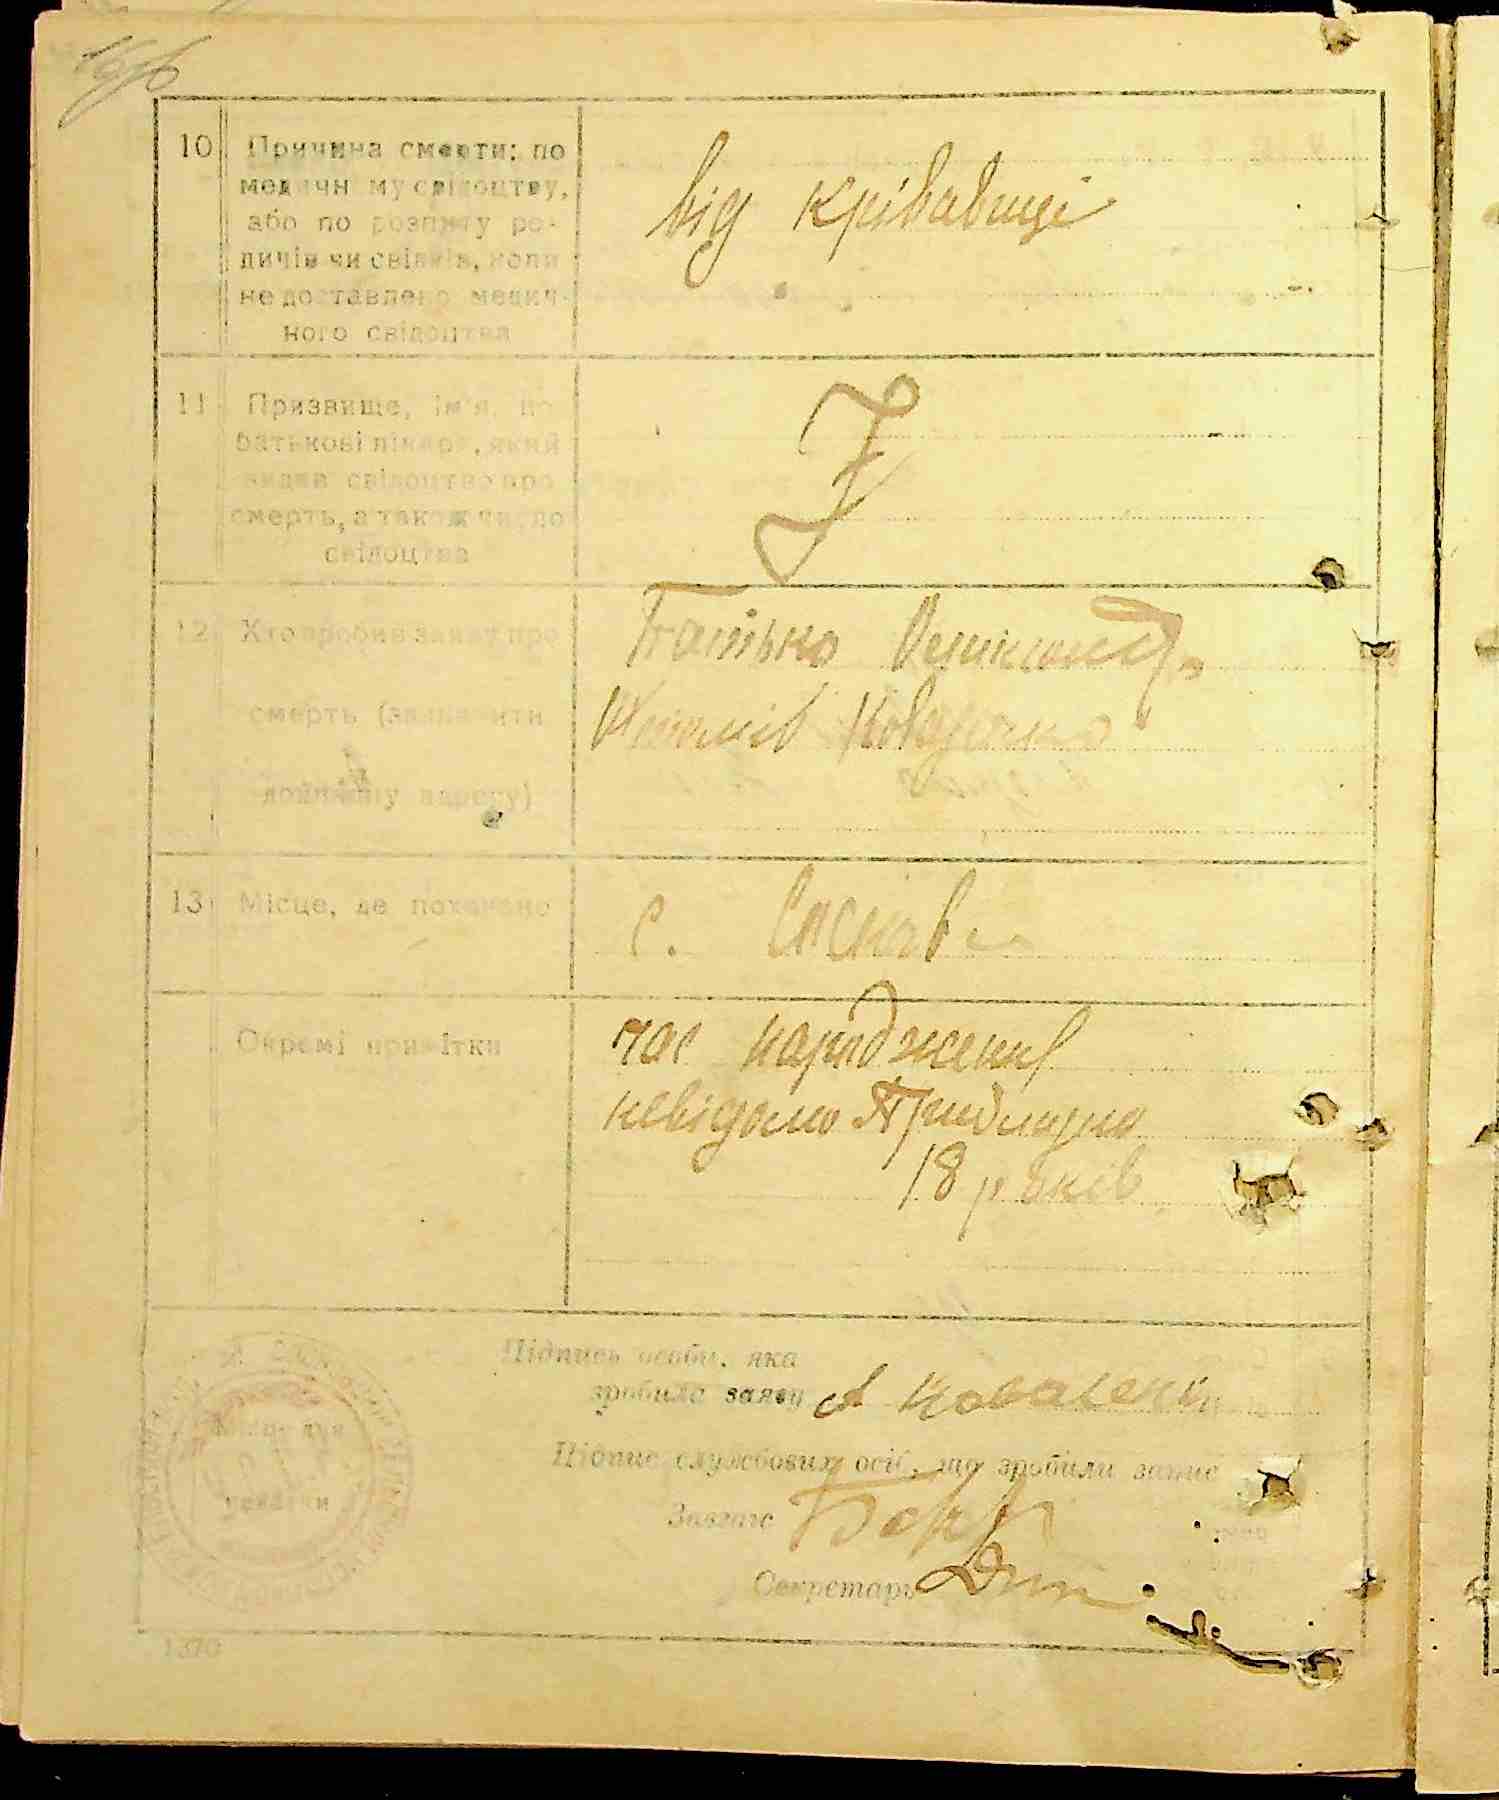 10 Причина смерти: по
медичному свідоцтву,
або по розпиту ро-
дичів чи свідків, коли
не доставлено медич-
ного свідоцтва
від крівавиці
11 Призвище, ім'я, по
батькові лікаря, який
видав свідоцтво про
смерть, а також число
свідоцтва
Z
12 Хто зробив заяву про
смерть (зазначити
домашню адресу)
Батько
13 Місце, де поховано
с.
Окремі примітки
час народження
невідомо Приблизно
18 років
Підпись особи, яка
зробила заяву А Коваленк
Підпис службових осіб, що зробили запис
Завзагс
Секретарь
1370